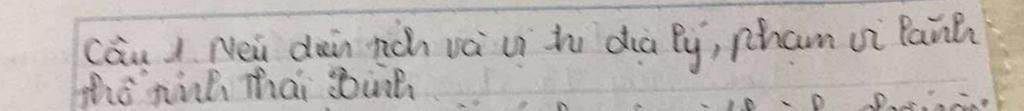 Câu 1. Nêu diện tích và vị trí địa lý, phạm vi lãnh
thổ tỉnh Thái Bình